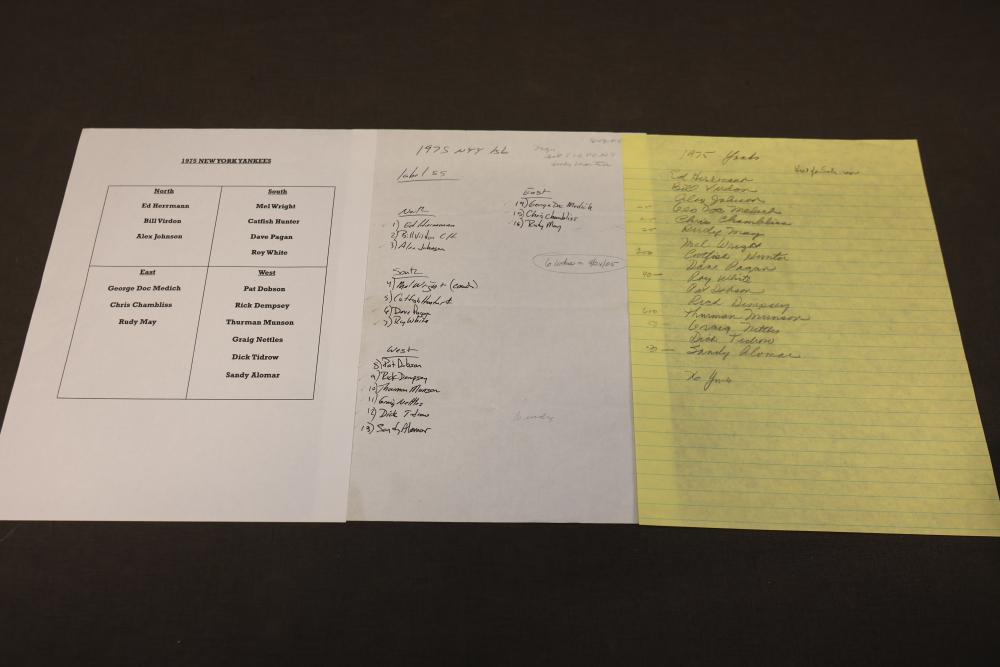 1975 NEW YORK YANKEES
North
Ed Herrmann
Bill Virdon
Alex Johnson
South
Mel Wright
Catfish Hunter
Dave Pagan
Roy White
East
George Doc Medich
Chris Chambliss
Rudy May
West
Pat Dobson
Rick Dempsey
Thurman Munson
Graig Nettles
Dick Tidrow
Sandy Alomar
1975 NYY
label 55
North
1) Ed Herrmann
2) Bill Virdon
3) Alex Johnson
South
4) Mel Wright (coach)
5) Catfish Hunter
6) Dave Pagan
7) Roy White
West
8) Pat Dobson
9) Rick Dempsey
10) Thurman Munson
11) Graig Nettles
12) Dick Tidrow
13) Sandy Alomar
East
14) George Doc Medich
15) Chris Chambliss
16) Rudy May
1975 Yanks
Ed Herrmann
Bill Virdon
Alex Johnson
Geo Doc Medich
Chris Chambliss
Rudy May
Mel Wright
200 Catfish Hunter
Dave Pagan
40 — Roy White
Pat Dobson
Rick Dempsey
Thurman Munson
Graig Nettles
Dick Tidrow
Sandy Alomar